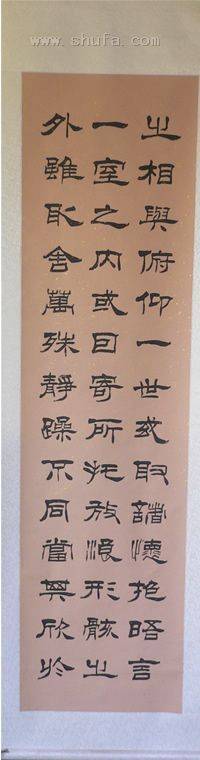 www.shufa.com
之相與俯仰一世或取諸懷抱晤言
一室之内或因寄所托放浪形骸之
外雖取舍萬殊靜躁不同當其欣於